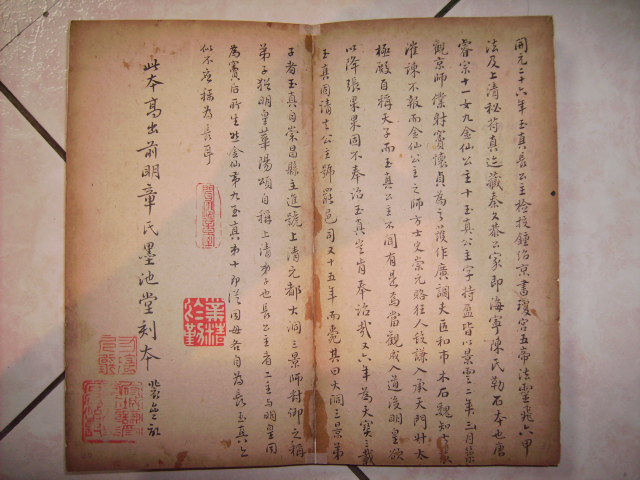 開元二十六年玉真長公主檢校鍾紹京書瓊宮五帝法靈飛六甲
法及上清秘符真迹藏秦文恭公家即海寧陳氏勒石本也唐
睿宗十一女九金仙公主十玉真公主字持盈皆以景雲二年三月築
觀京師黨射竇懷貞為之護作廣調大匠和市木石魏知古
漼諫不報而金仙公主之師方士史崇元賂狂人段謙入承天門升太
極殿自稱天子而玉真公主不聞有是為當觀成入道後明皇欲
以降張果果固不奉詔玉真豈肯奉詔哉又六年為天寶三載
玉真固請去公主號罷邑司又十五年而薨其曰大洞三景弟
子者玉真自崇昌縣主進號上清元都大洞三景師封御之稱
弟子猶明皇華陽頌自稱上清弟子也長公主者二主与明皇同
為竇后所生然金仙第九玉真第十即從同母各自為長玉真亦
似不应稱為長耳
此本葢出前明章氏墨池堂刻本